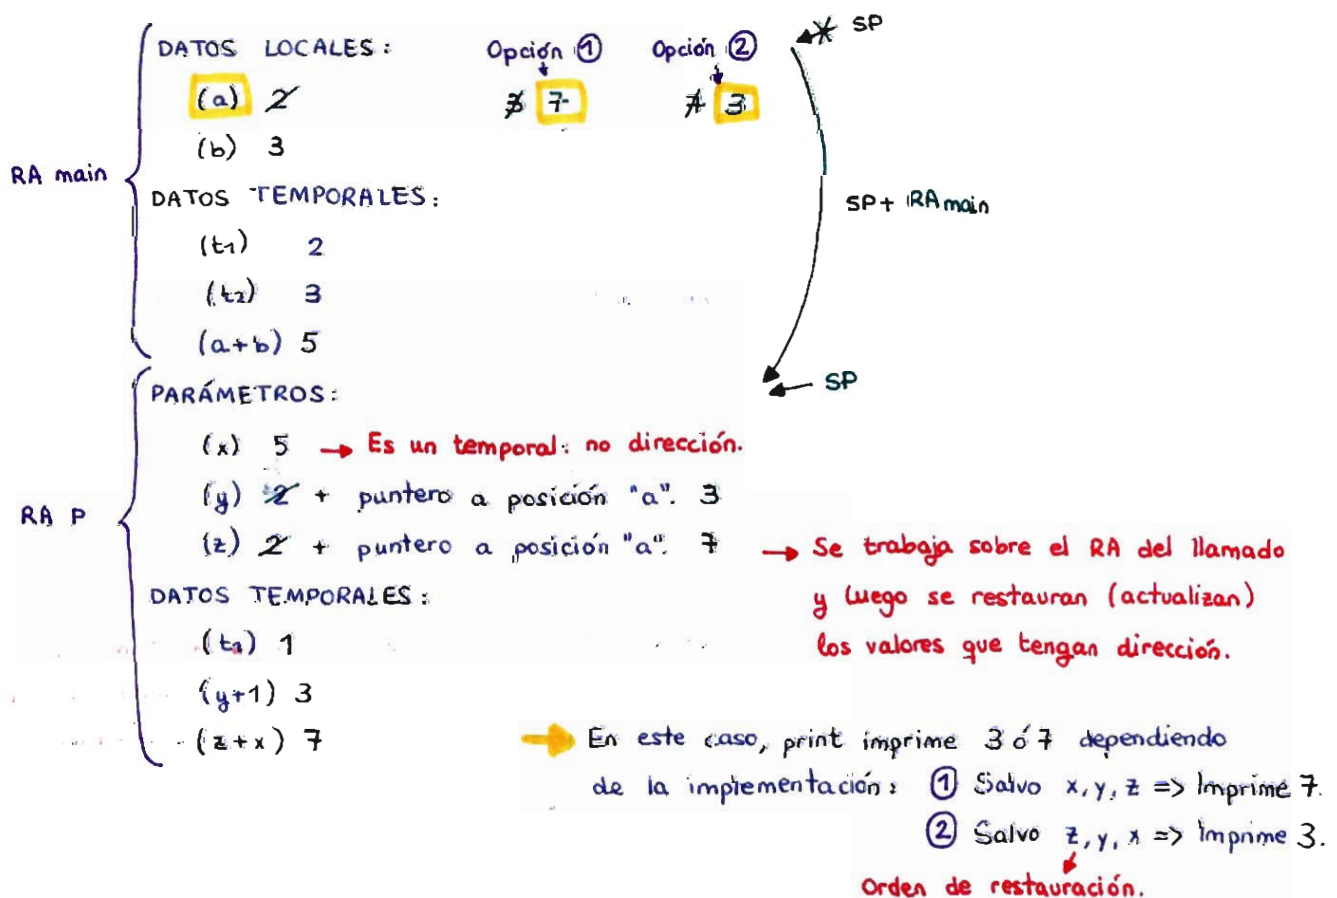 DATOS LOCALES: Opción ① Opción ② SP
(a) 2 3 7 7 3
(b) 3
RA main
DATOS TEMPORALES:
SP + RA main
(t1) 2
(t2) 3
(a+b) 5
SP
PARÁMETROS:
(x) 5 → Es un temporal: no dirección.
(y) 2 + puntero a posición "a". 3
RA P
(z) 2 + puntero a posición "a". 7 → Se trabaja sobre el RA del llamado
y luego se restauran (actualizan)
los valores que tengan dirección.
DATOS TEMPORALES:
(t3) 1
(y+1) 3
(z+x) 7
→ En este caso, print imprime 3 ó 7 dependiendo
de la implementación: ① Salvo x, y, z => Imprime 7.
② Salvo z, y, x => Imprime 3.
Orden de restauración.